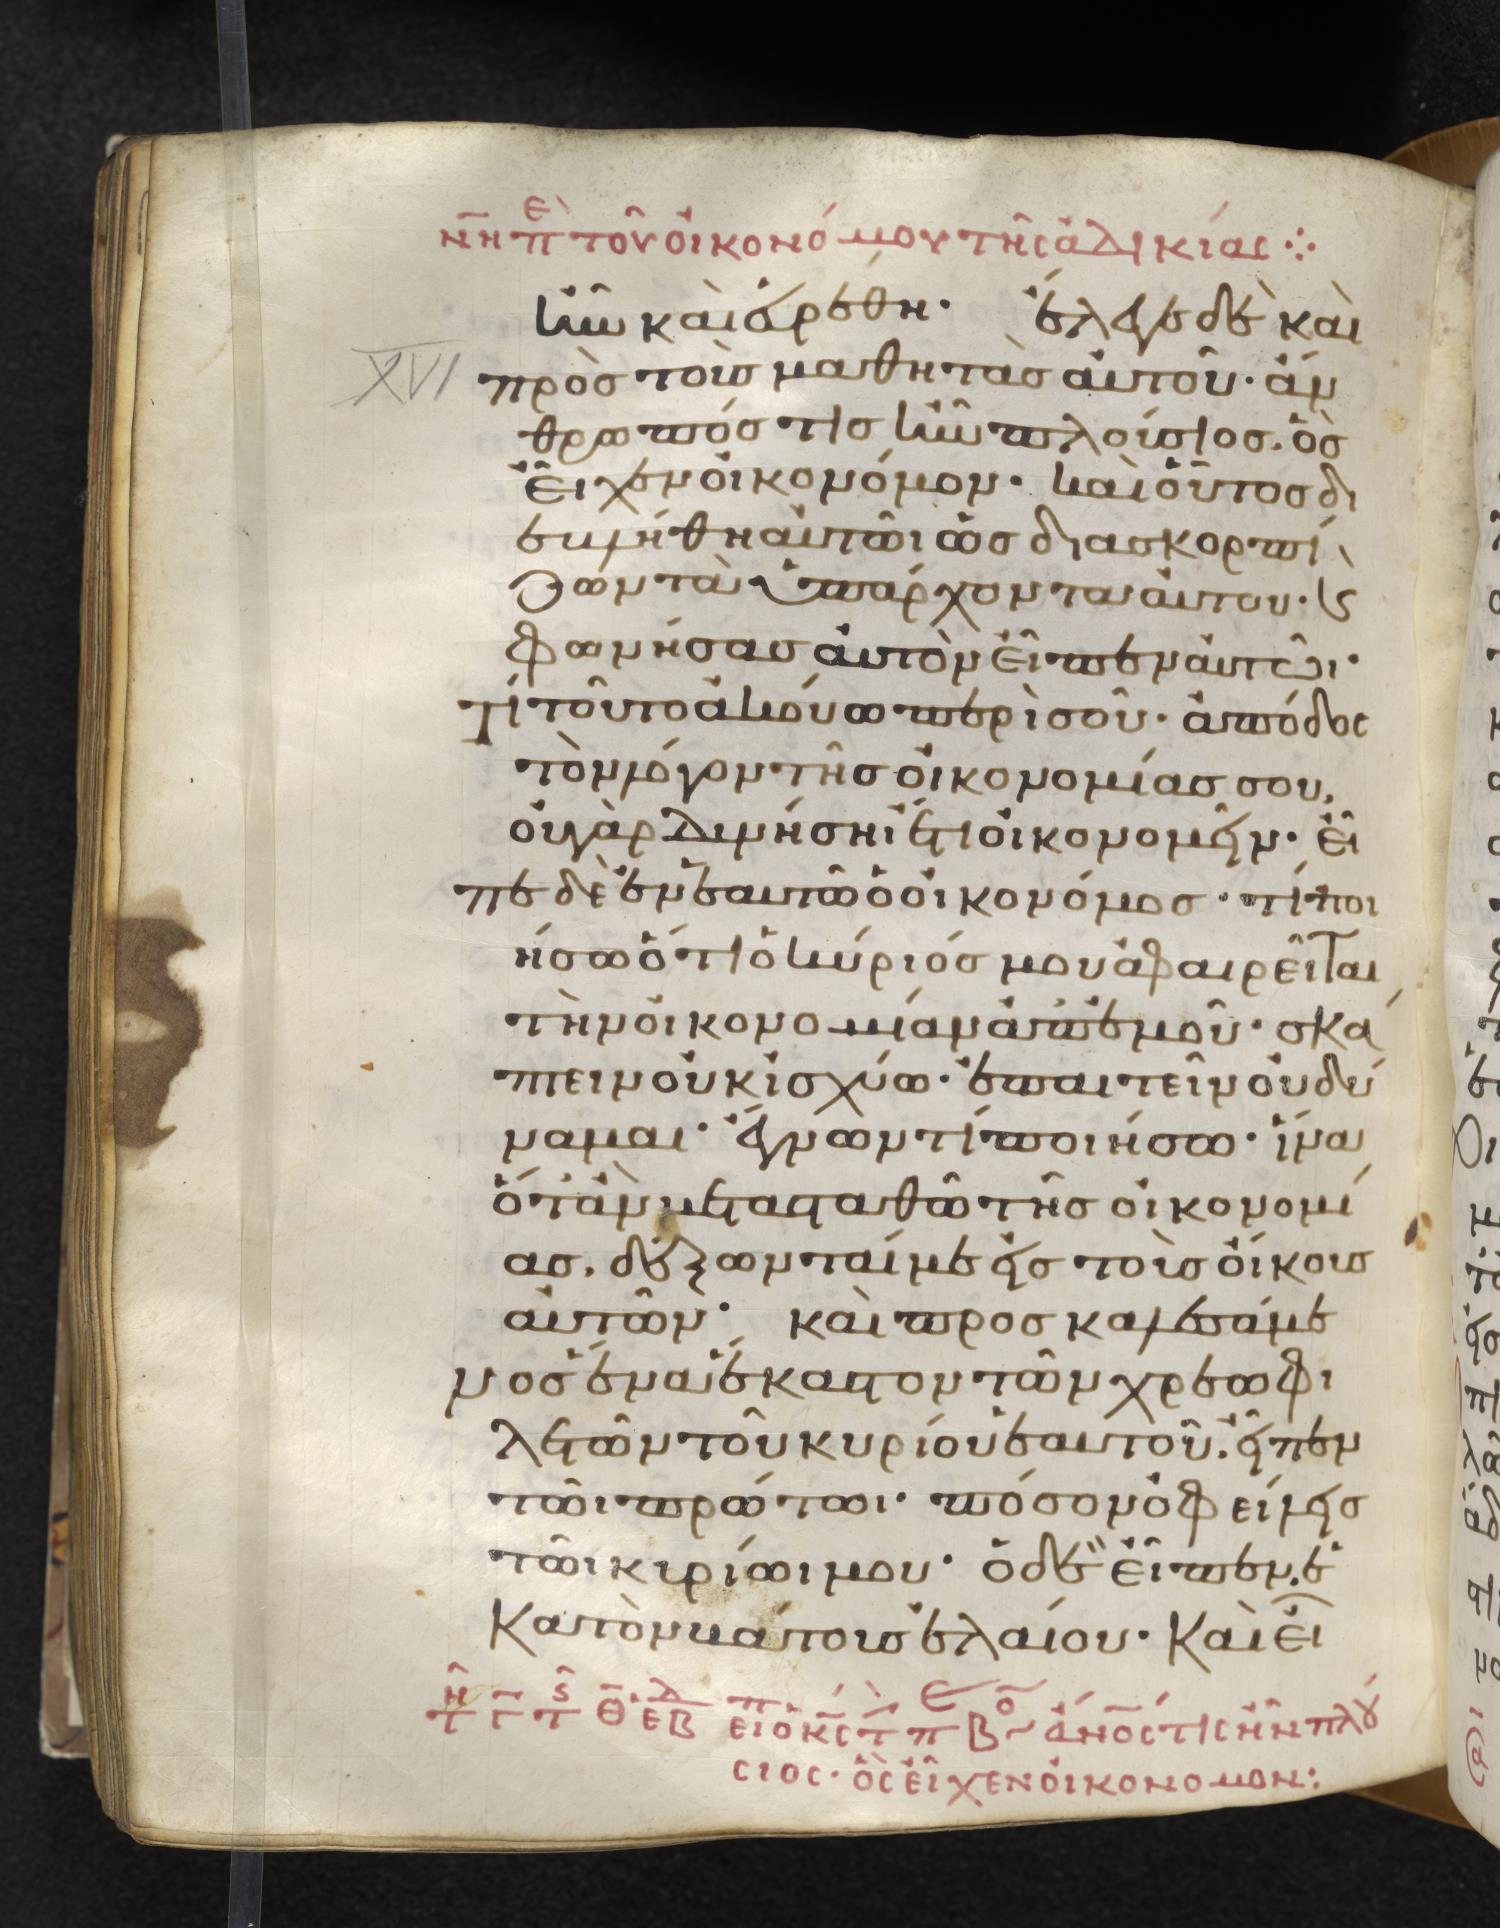 ν̅η πὲ τοῦ οἰκονόμου τῆς ἀδικίας ⁘
ἦν καὶ εὑρέθη· ἔλεγε δὲ καὶ
XVI
πρὸσ τοὺσ μαθητὰσ αὐτοῦ· ἄν
θρωπόσ τισ ἦν πλούσιοσ. ὃσ
εἶχεν οἰκονόμον· καὶ οὗτοσ δι
εβλήθη αὐτῶι ὡσ διασκορπί
ζων τὰ ὑπάρχοντα αὐτου· κ(αὶ)
φωνήσασ αὐτὸν εἶπεν αὐτῶι·
τί τοῦτο ἀκούω περὶ σοῦ· ἀπόδοσ
τὸν λόγον τῆσ οἰκονομίασ σου,
οὐ γὰρ δυνήσηι ἔτι οἰκονομεῖν· εἶ
πε δὲ ἐν ἑαυτῶ ὁ οἰκονόμοσ· τί ποι
ήσω ὅτι ὁ κύριόσ μου ἀφαιρεῖται
τὴν οἰκονομίαν ἀπ' ἐμοῦ· σκά
πτειν οὐκ ἰσχύω· ἐπαιτεῖν οὐ δύ
ναμαι· ἔγνων τί ποιήσω· ἵνα
ὅταν μετασταθῶ τῆσ οἰκονομί
ασ. δέξωνταί με εἰσ τοὺσ οἴκουσ
αὐτῶν· καὶ προσκαλεσάμε
νοσ ἕνα ἕκαστον τῶν χρεωφι
λετῶν τοῦ κυρίου ἑαυτοῦ. εἶπεν
τῶι πρώτωι· πόσον ὀφείλεισ
τῶι κυρίωι μου· ὁ δὲ εἶπεν. ἑ
κατὸν κάτουσ ἐλαίου· Καὶ εἶ
ἄνος τις ἦν πλού
σιος· ὃς εἶχεν οἰκονομον: